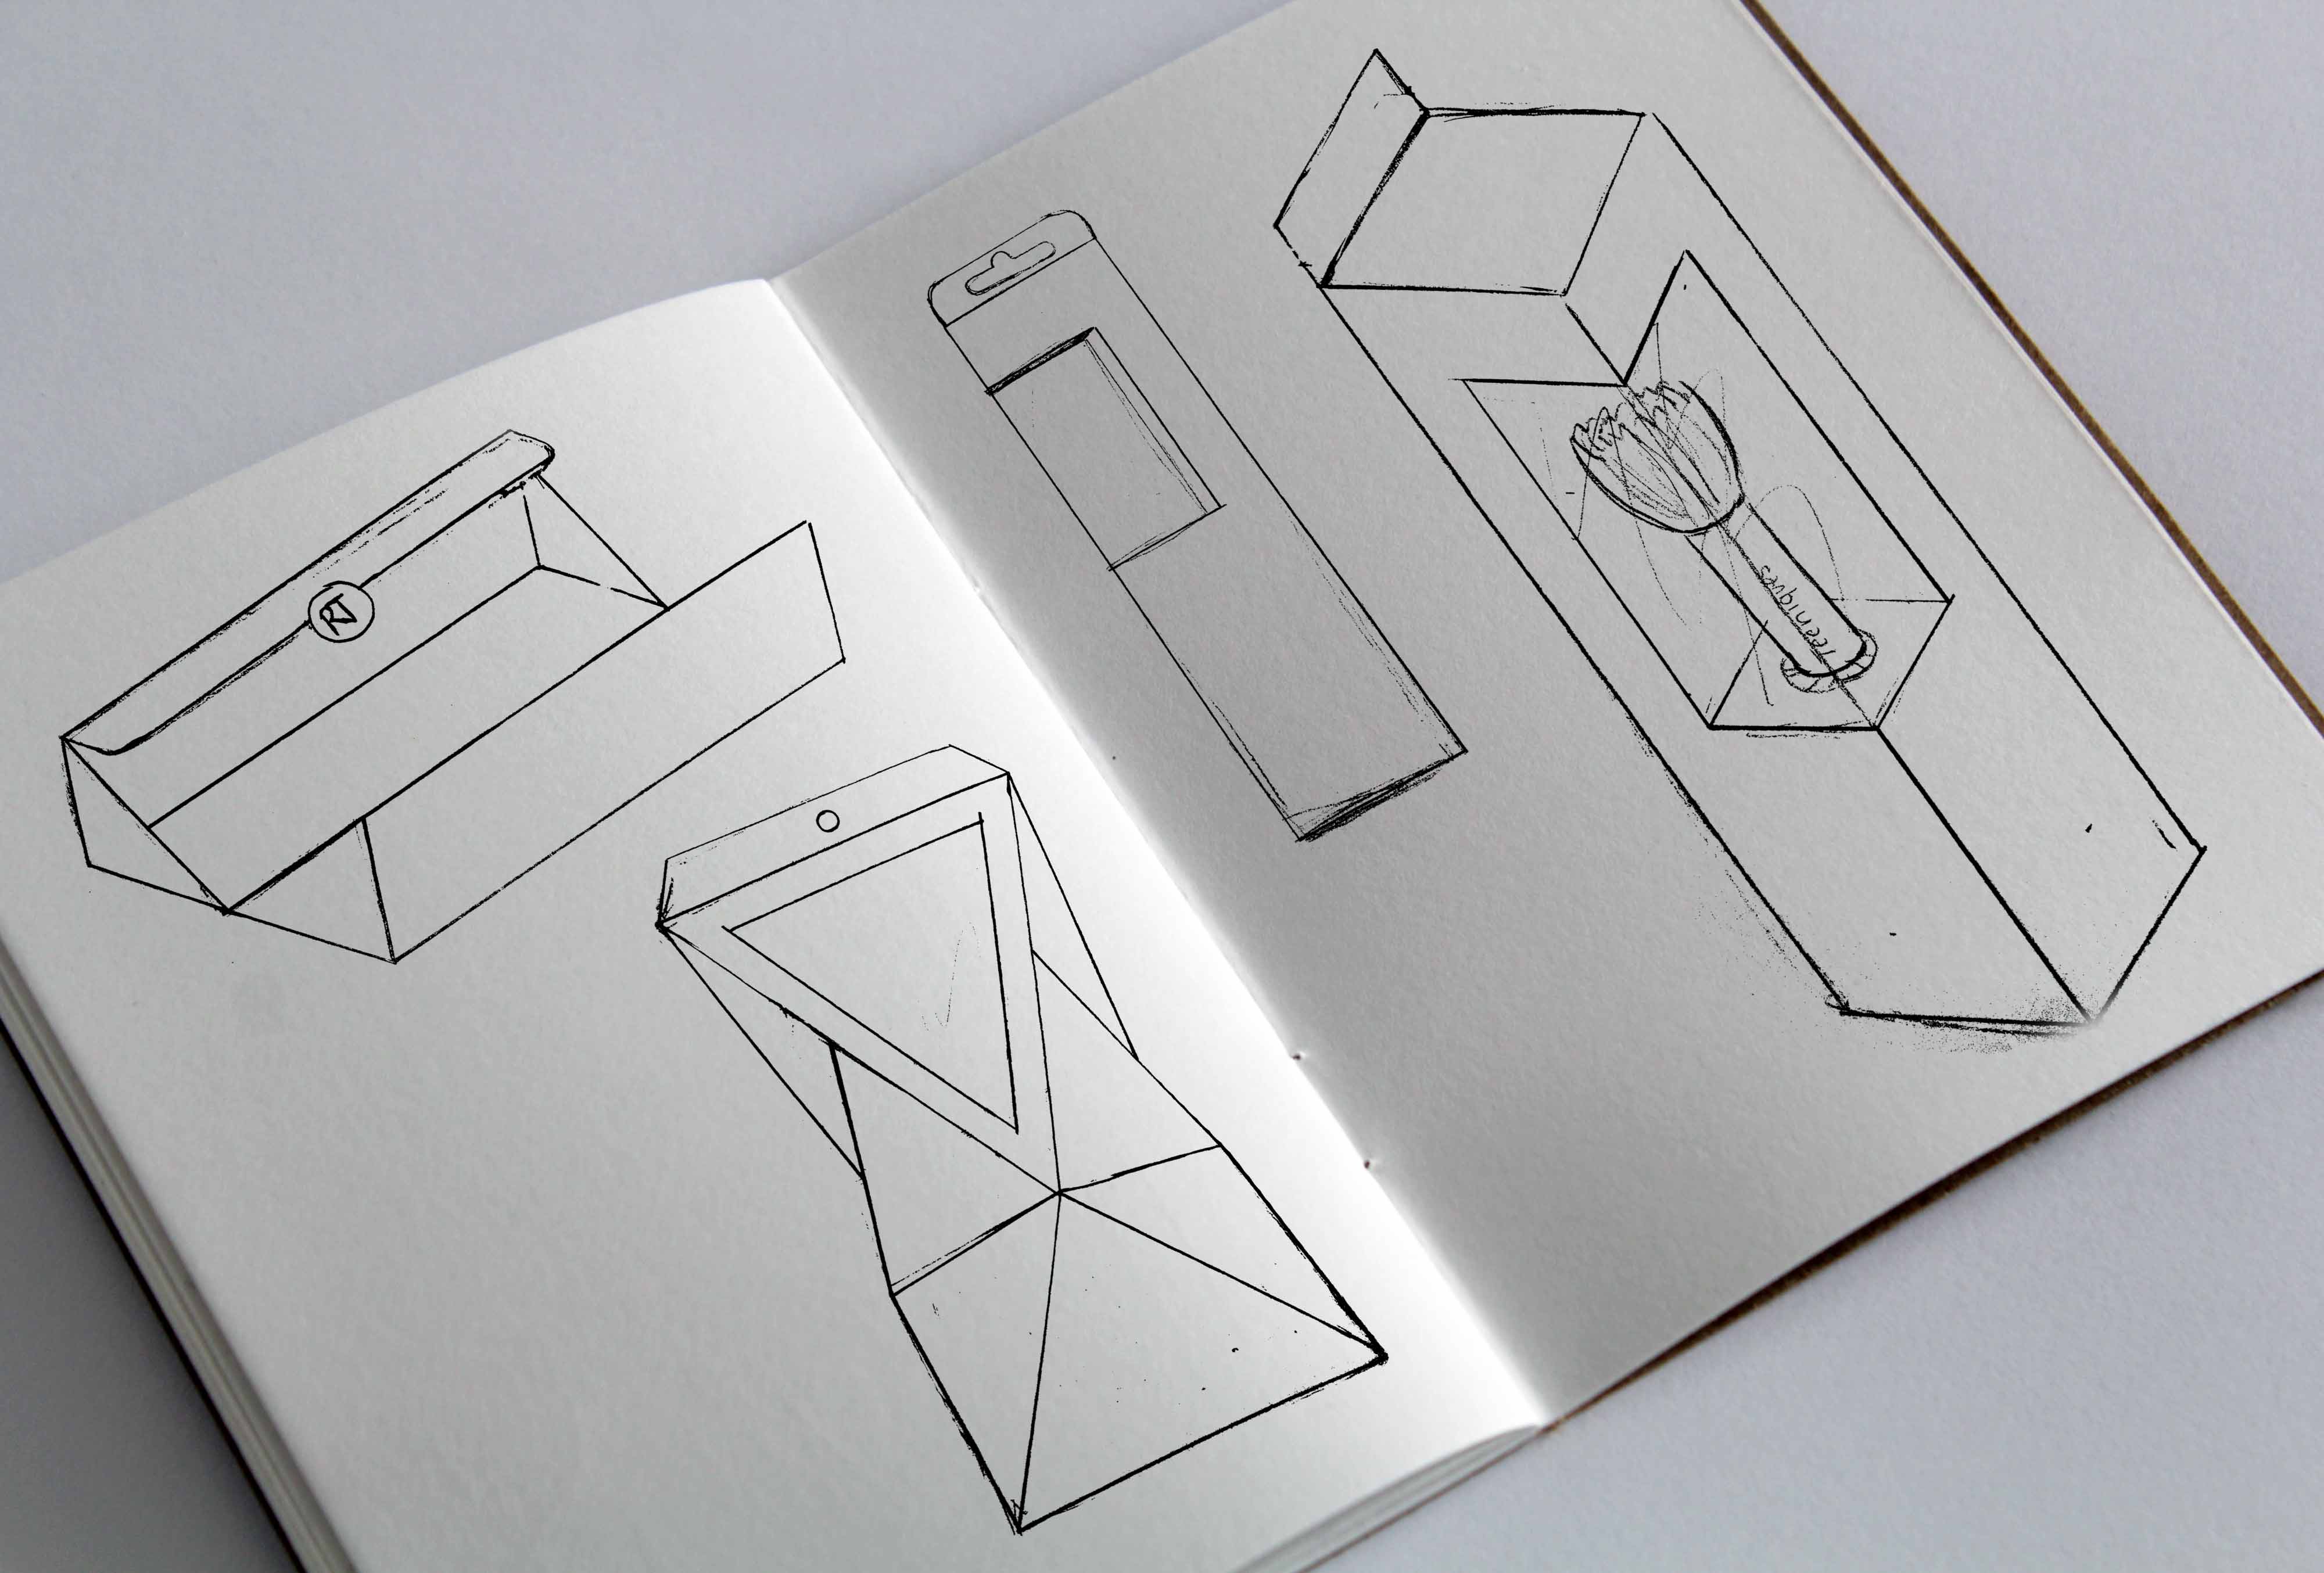 RT
Teeniques